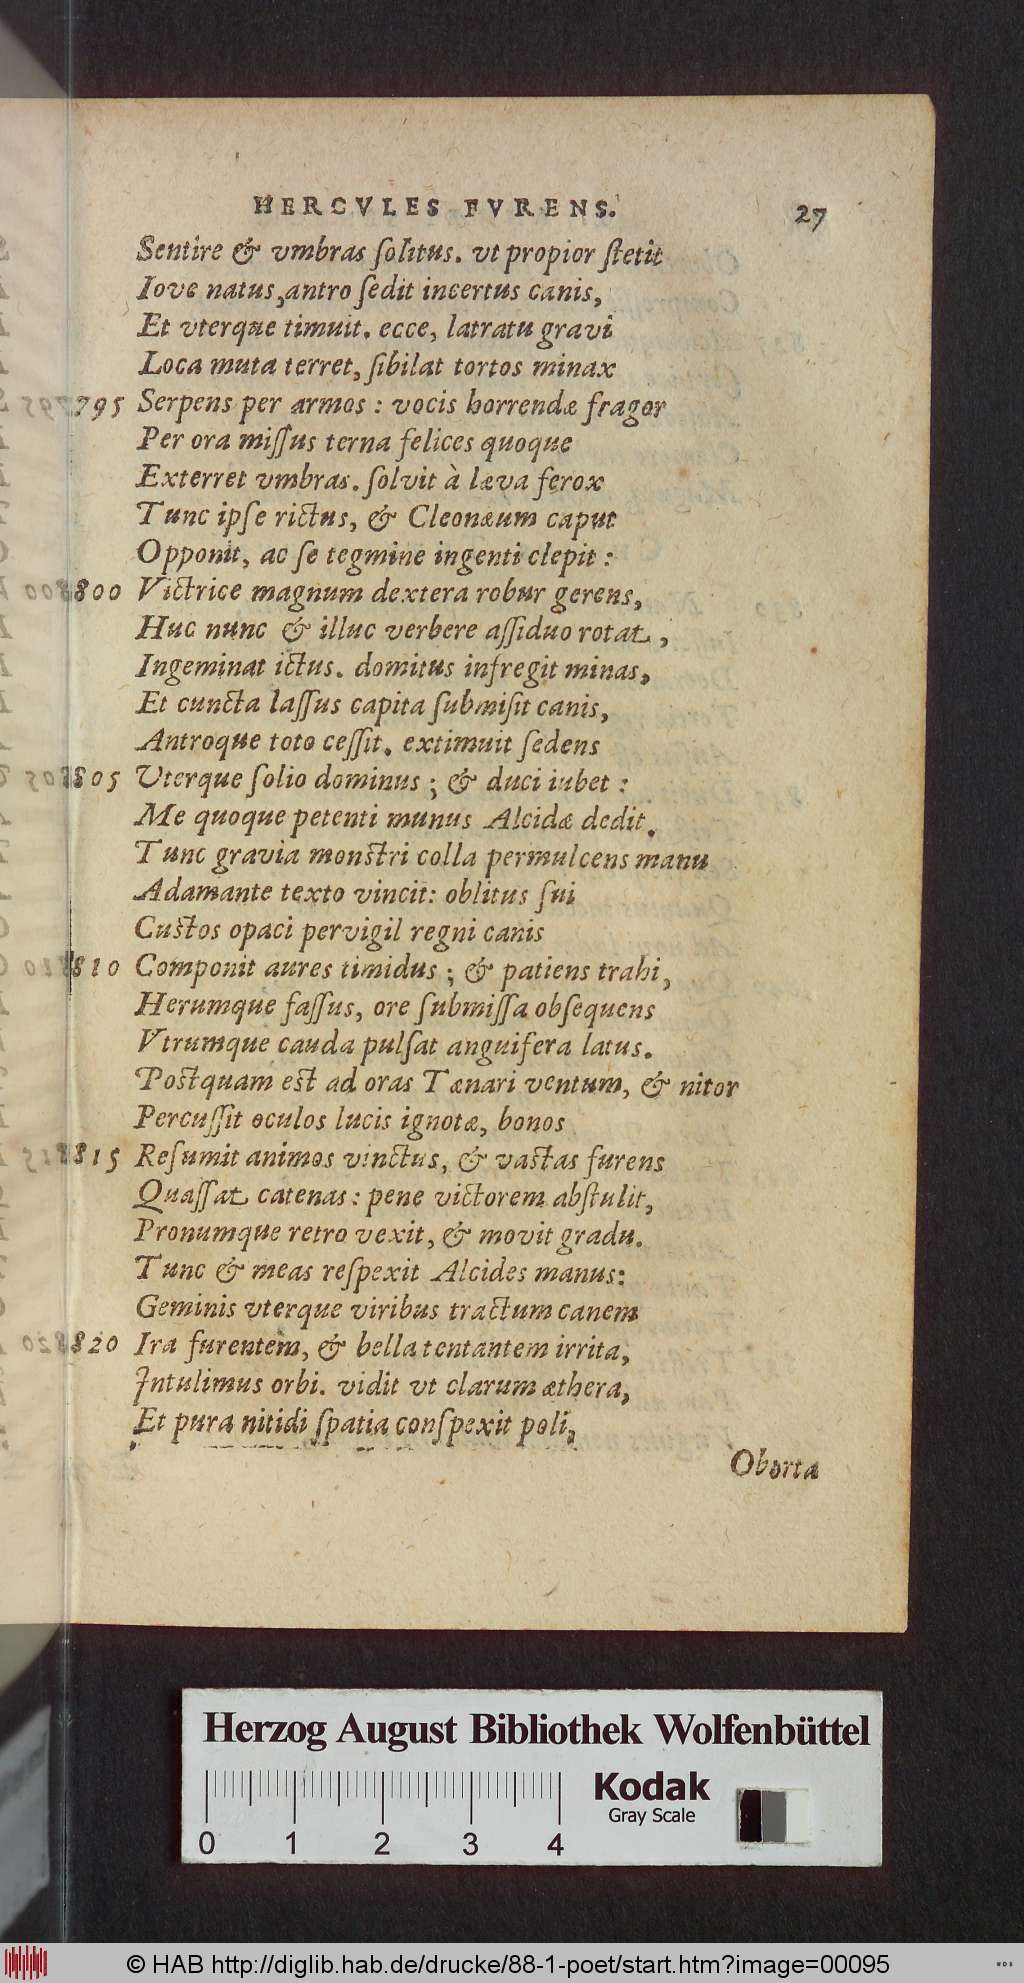 HERCVLES FVRENS. 27
Sentire & vmbras ſolitus. vt propior ſtetit
Iove natus, antro ſedit incertus canis,
Et vterque timuit. ecce, latratu gravi
Loca muta terret, ſibilat tortos minax
795 Serpens per armos : vocis horrendæ fragor
Per ora miſſus terna felices quoque
Exterret vmbras. ſolvit à læva ferox
Tunc ipſe rictus, & Cleonæum caput
Opponit, ac ſe tegmine ingenti clepit :
800 Victrice magnum dextera robur gerens,
Huc nunc & illuc verbere aſſiduo rotat,
Ingeminat ictus. domitus infregit minas,
Et cuncta laſſus capita ſubmiſit canis,
Antroque toto ceſſit. extimuit ſedens
805 Vterque ſolio dominus ; & duci iubet :
Me quoque petenti munus Alcidæ dedit.
Tunc gravia monſtri colla permulcens manu
Adamante texto vincit: oblitus ſui
Cuſtos opaci pervigil regni canis
810 Componit aures timidus ; & patiens trahi,
Herumque faſſus, ore ſubmiſſa obſequens
Vtrumque cauda pulſat anguifera latus.
Poſtquam eſt ad oras Tænari ventum, & nitor
Percuſſit oculos lucis ignotæ, bonos
815 Reſumit animos vinctus, & vaſtas furens
Quaſſat catenas : pene victorem abſtulit,
Pronumque retro vexit, & movit gradu.
Tunc & meas reſpexit Alcides manus:
Geminis vterque viribus tractum canem
820 Ira furentem, & bella tentantem irrita,
Intulimus orbi. vidit vt clarum æthera,
Et pura nitidi ſpatia conſpexit poli,
Oborta
Herzog August Bibliothek Wolfenbüttel
Kodak
Gray Scale
0 1 2 3 4
© HAB http://diglib.hab.de/drucke/88-1-poet/start.htm?image=00095